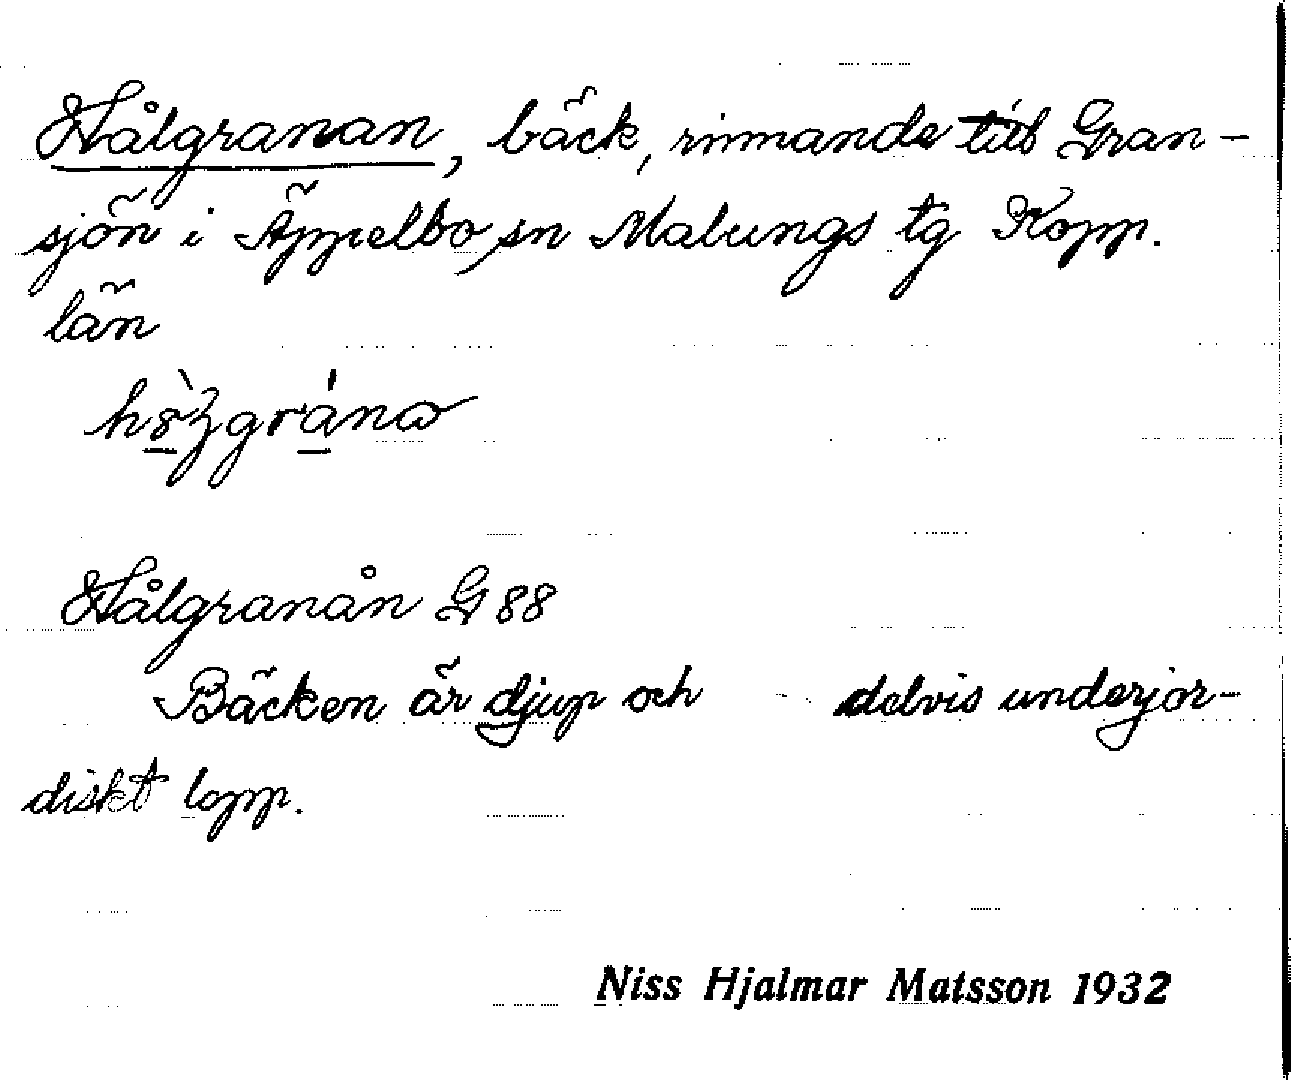 Hålgranan, bäck, rinnande till Gran-
sjön i Äppelbo sn Malungs tg Kopp.
län
Hålgranån G 88
Bäcken är djup och delvis underjor-
diskt lopp.
Niss Hjalmar Matsson 1932